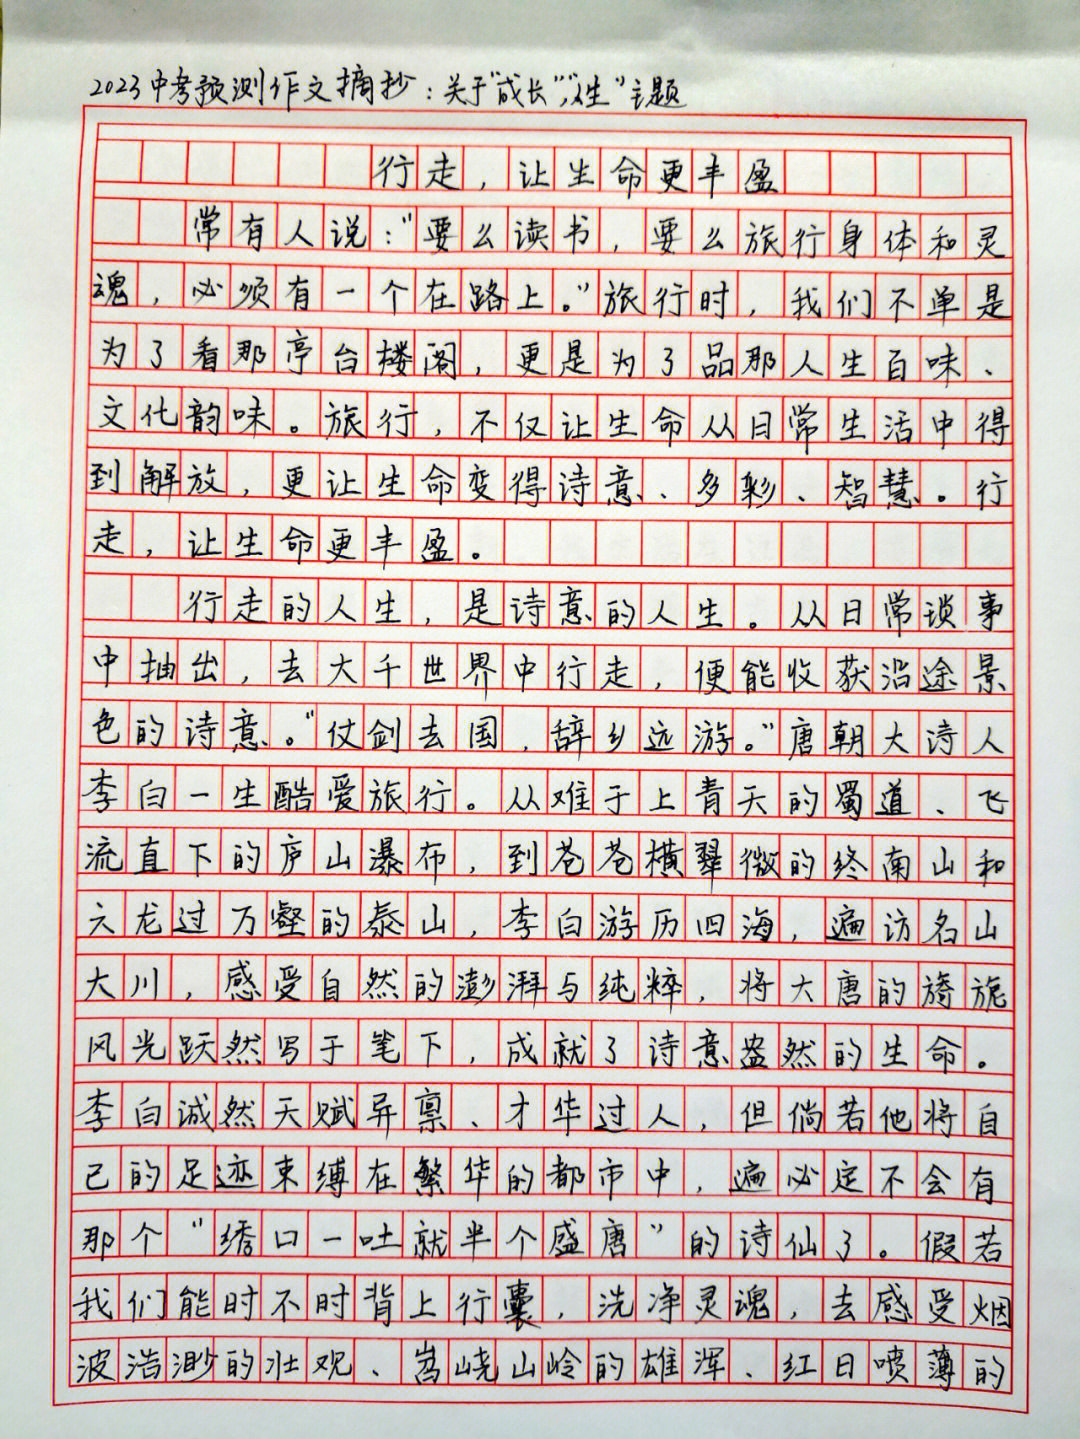 2023中考预测作文摘抄：关于"成长""人生"主题
行走，让生命更丰盈
常有人说："要么读书，要么旅行身体和灵
魂，必须有一个在路上。"旅行时，我们不单是
为了看那亭台楼阁，更是为了品那人生百味、
文化韵味。旅行，不仅让生命从日常生活中得
到解放，更让生命变得诗意、多彩、智慧。行
走，让生命更丰盈。
行走的人生，是诗意的人生。从日常琐事
中抽出，去大千世界中行走，便能收获沿途景
色的诗意。"仗剑去国，辞乡远游。"唐朝大诗人
李白一生酷爱旅行。从难于上青天的蜀道、飞
流直下的庐山瀑布，到苍苍横翠微的终南山和
六龙过万壑的泰山，李白游历四海，遍访名山
大川，感受自然的澎湃与纯粹，将大唐的旖旎
风光跃然写于笔下，成就了诗意盎然的生命。
李白诚然天赋异禀、才华过人，但倘若他将自
己的足迹束缚在繁华的都市中，遍必定不会有
那个"绣口一吐就半个盛唐"的诗仙了。假若
我们能时不时背上行囊，洗净灵魂，去感受烟
波浩渺的壮观、嵩峣山岭的雄浑、红日喷薄的